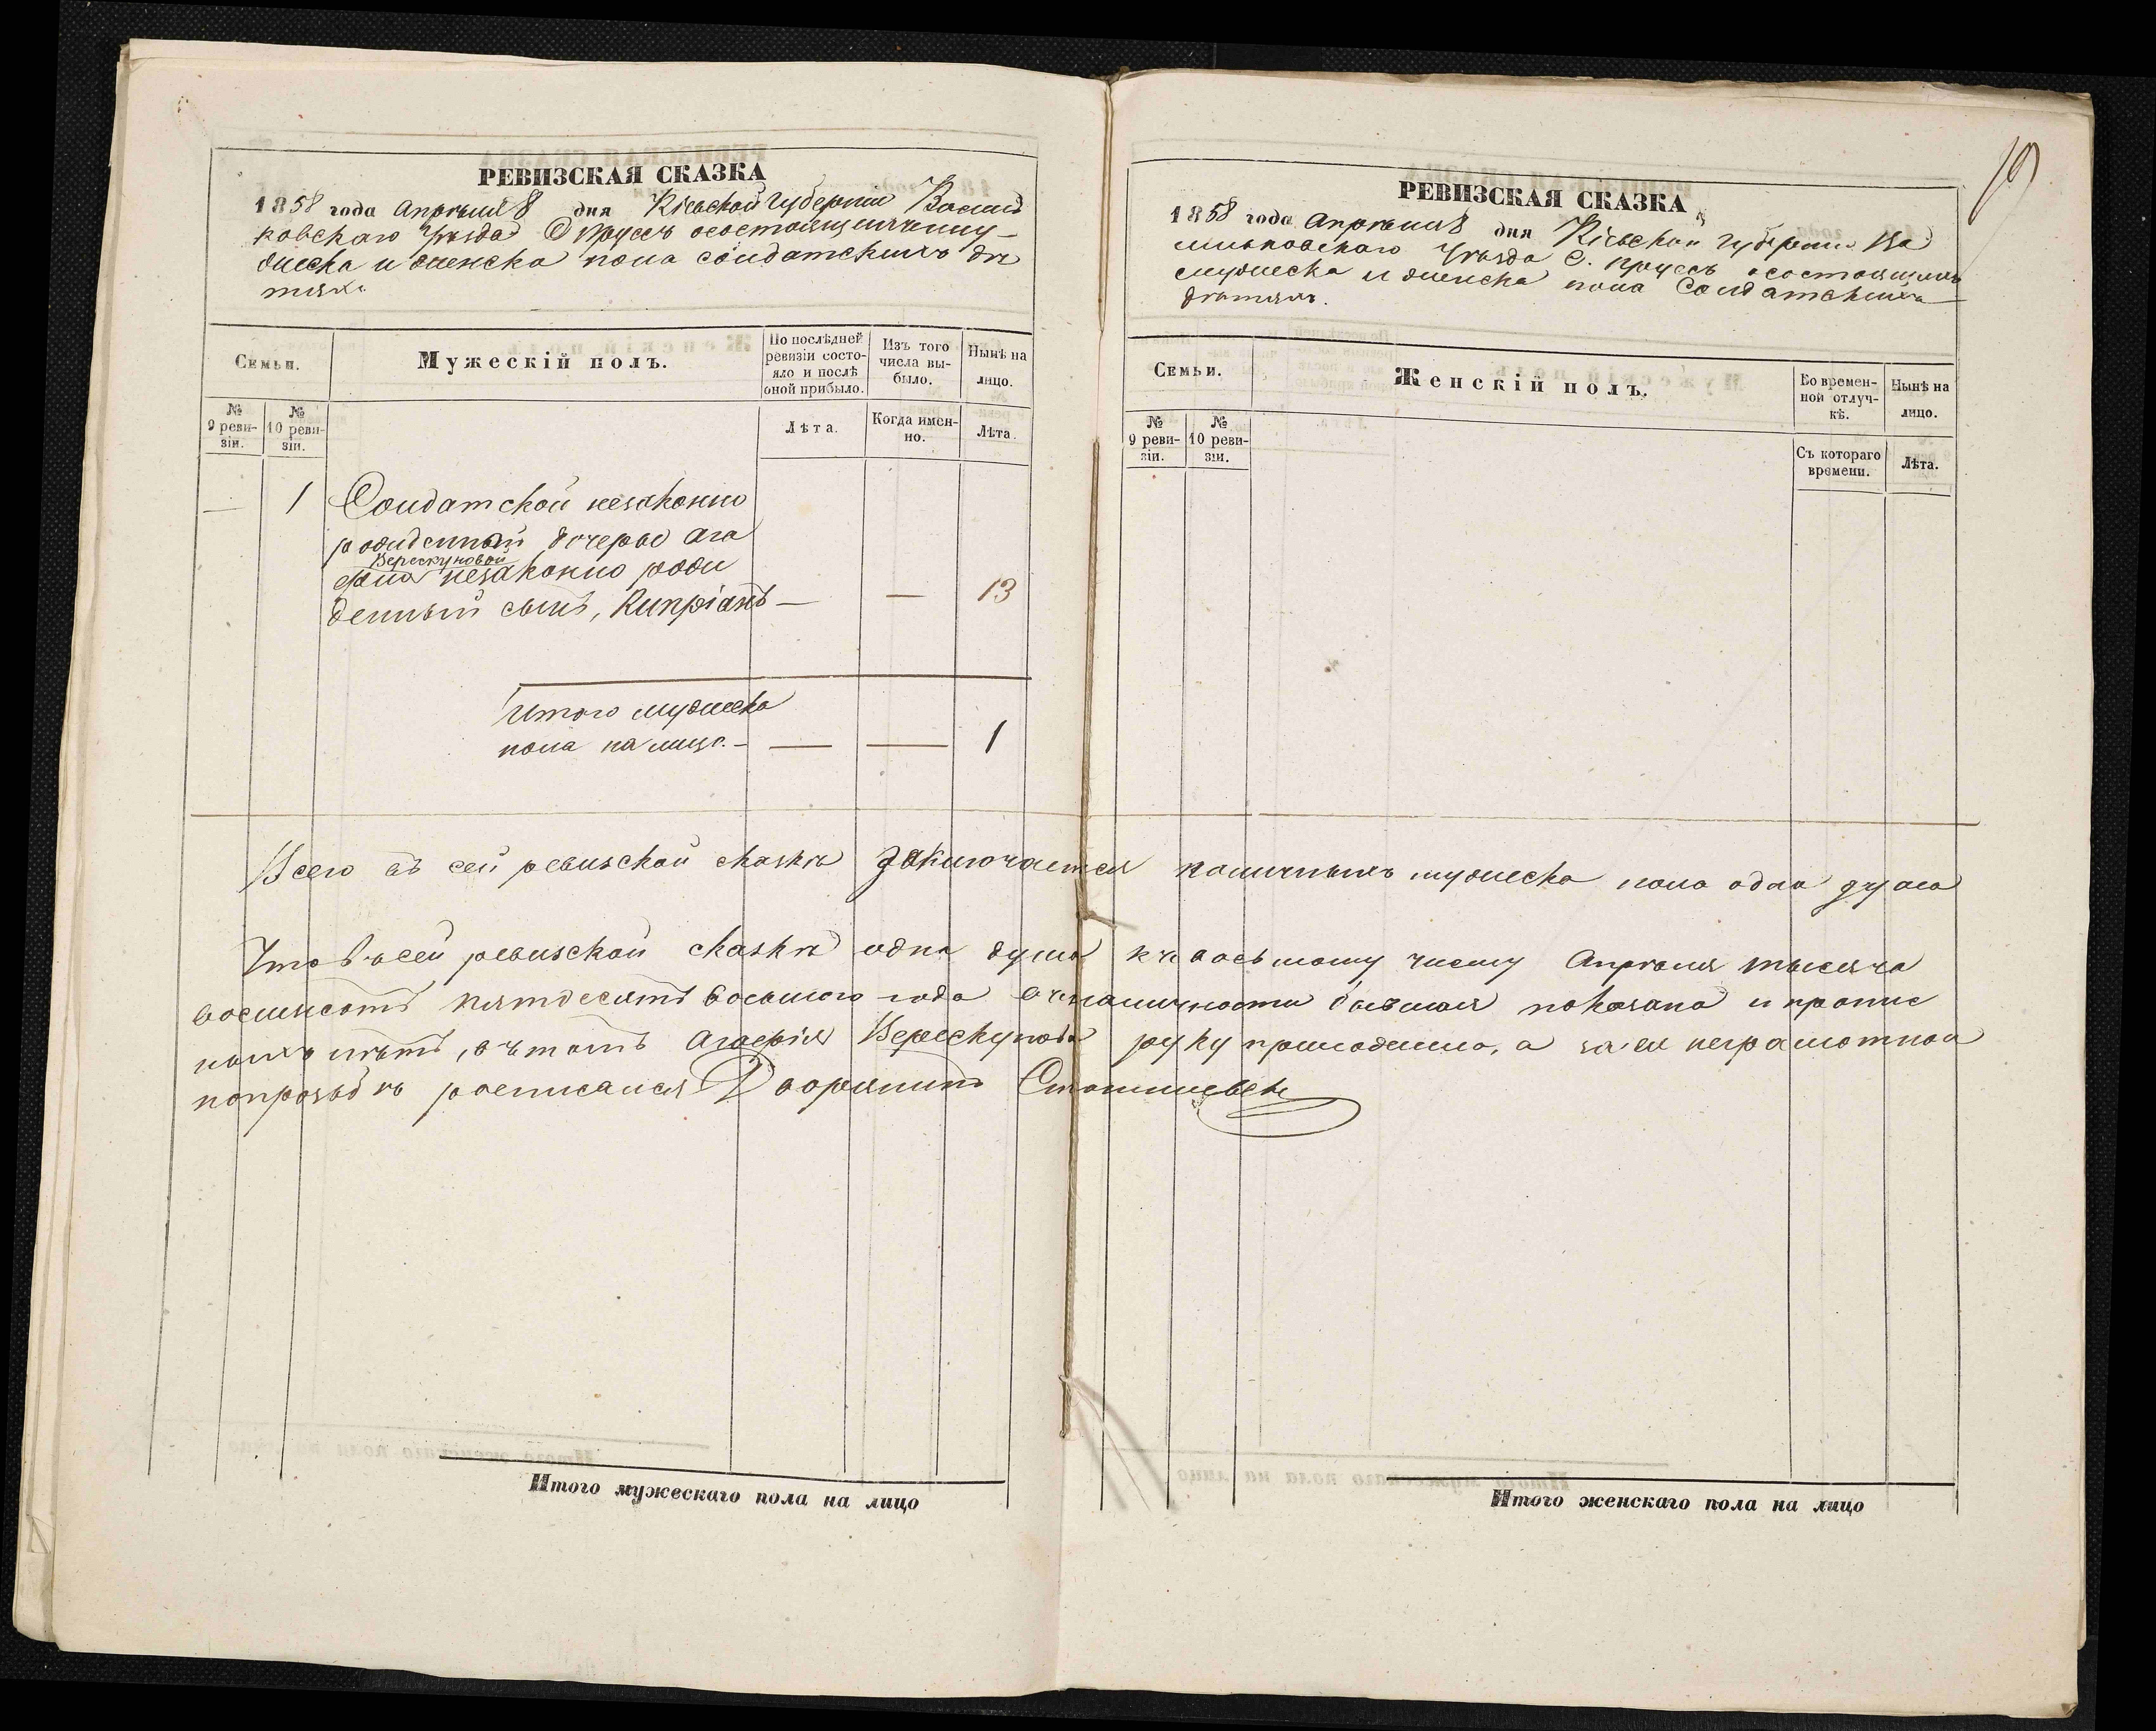 РЕВИЗСКАЯ СКАЗКА
1858 года Апрѣля 8 дня Кіевской Губерніи Василь
ковскаго Уѣзда С Прусъ о состоящихъ му
жеска и женска пола солдатскихъ дѣ
тяхъ
Семьи.
Мужескій полъ.
По послѣдней ревизіи состояло и послѣ оной прибыло.
Изъ того числа выбыло.
Нынѣ на лицо.
№ 9 ревизіи.
№ 10 ревизіи.
Лѣта.
Когда именно.
Лѣта.
— 1 Солдатской незаконно
рожденной дочери Ага
Верескуновой
фіи незаконно рож
денный сынъ, Кипріанъ — — 13
Итого мужеска
пола на лицо. — — — 1
РЕВИЗСКАЯ СКАЗКА
19
1858 года Апрѣля 8 дня Кіевской Губерніи Ва
сильковскаго Уѣзда С. Прусъ о состоящихъ
мужеска и женска пола Солдатскихъ
дѣтяхъ.
Семьи.
Женскій полъ.
Во временной отлучкѣ.
Нынѣ на лицо.
№ 9 ревизіи.
№ 10 ревизіи.
Съ котораго времени.
Лѣта.
Всего въ сей ревизской сказкѣ заключается наличныхъ мужеска пола одна душа
Что въ сей ревизской сказкѣ одна душа къ восьмому числу Апрѣля тысяча
восемсотъ пятдесятъ восьмого года въ наличности бывшая показана и пропис
ныхъ нѣтъ, въ томъ Агафія Верескунова руку приложила, а за ея неграмотной
по прозбѣ росписался Дворянинъ
Итого мужескаго пола на лицо
Итого женскаго пола на лицо